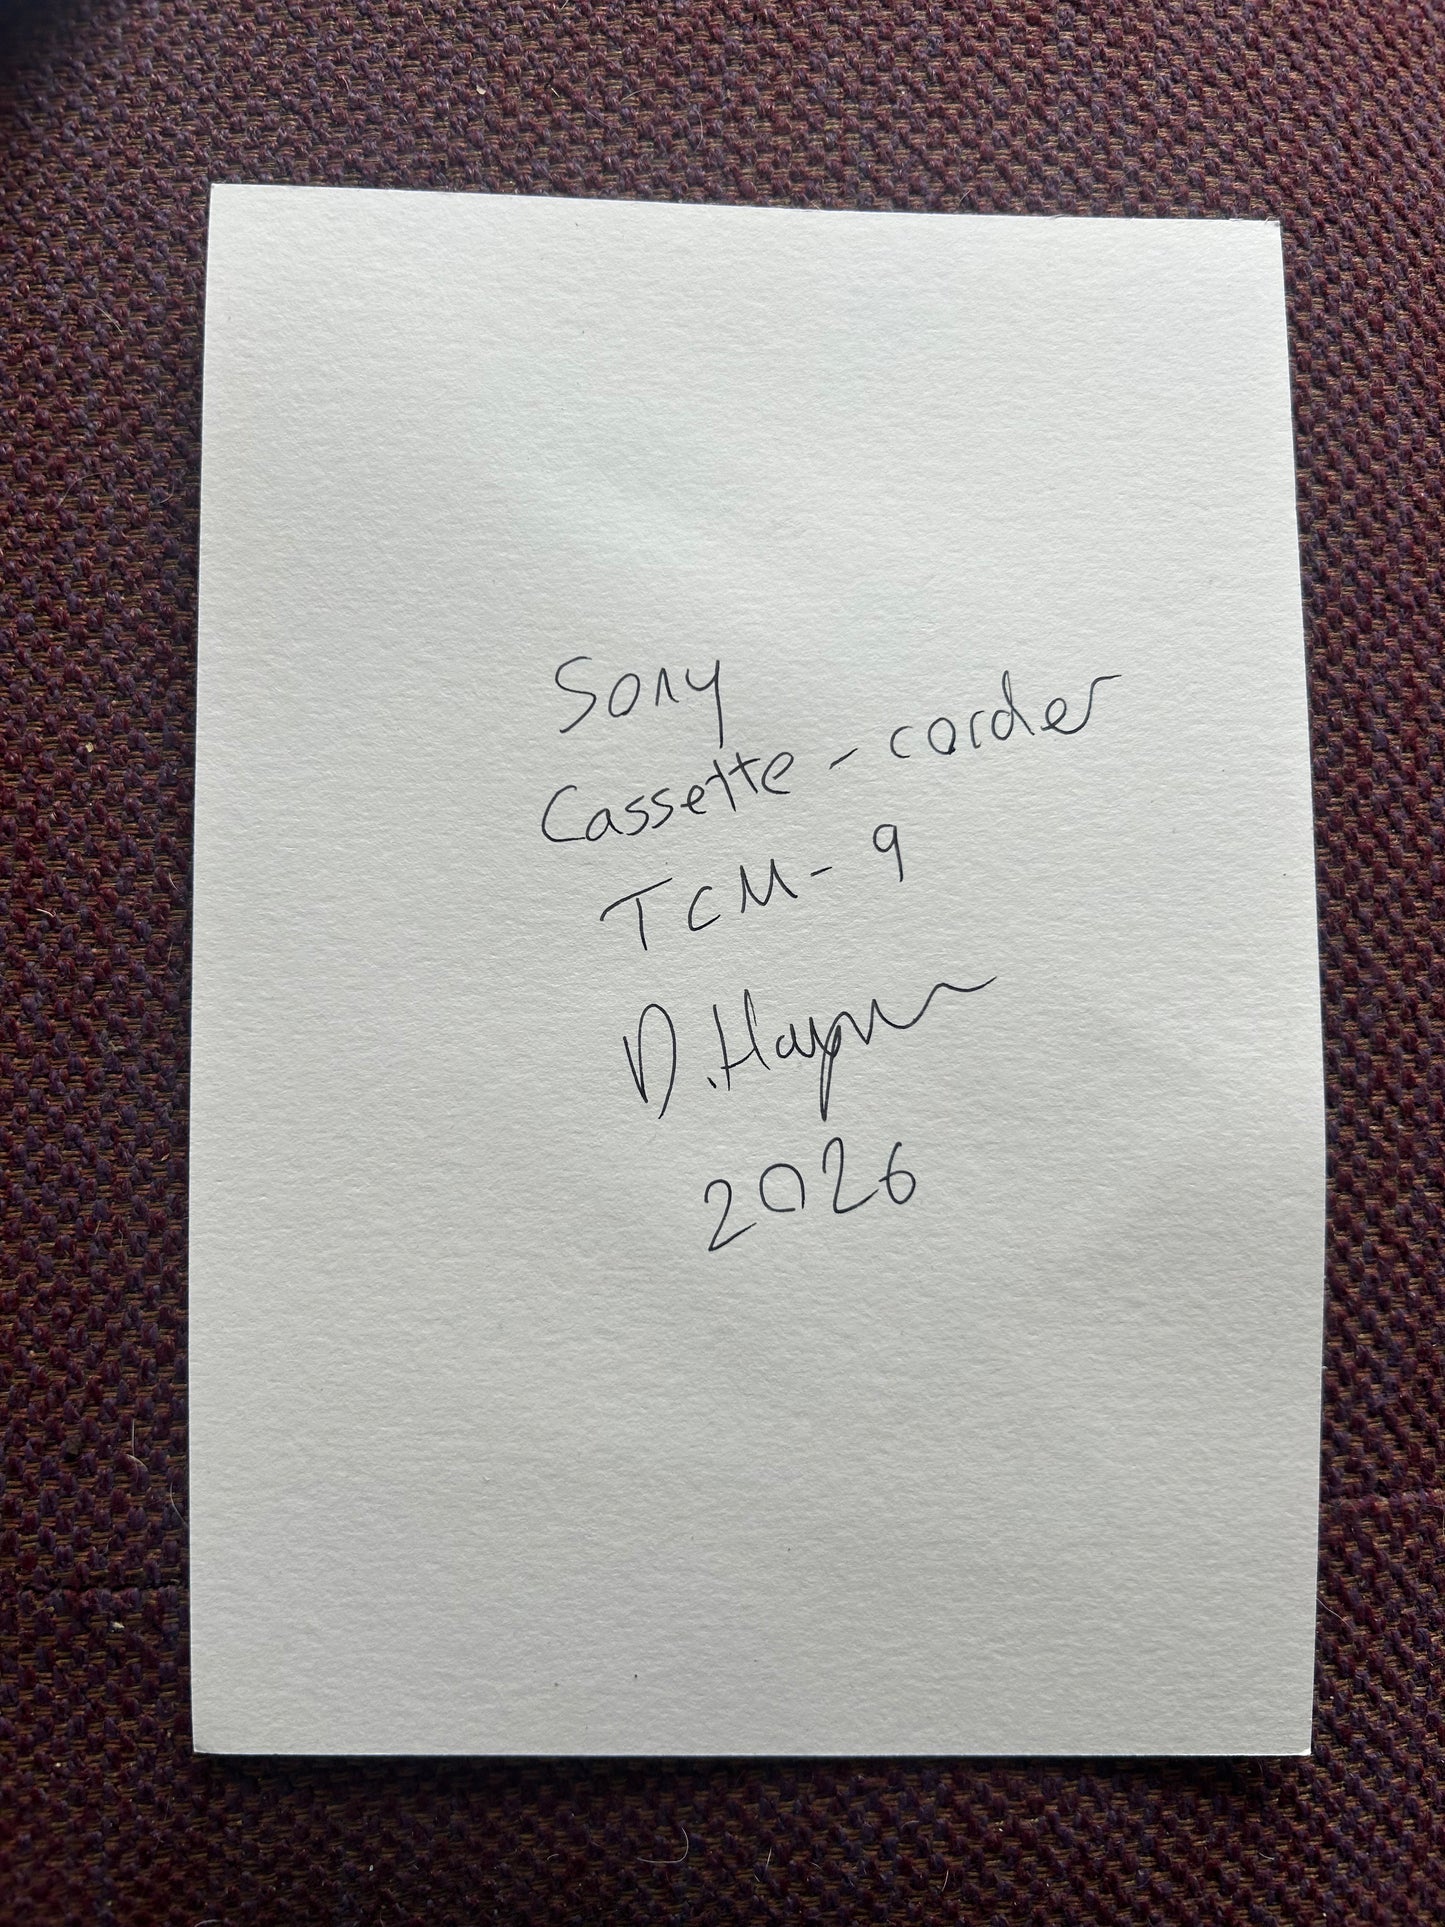 Sony
Cassette-corder
TCM-9
D.
2026